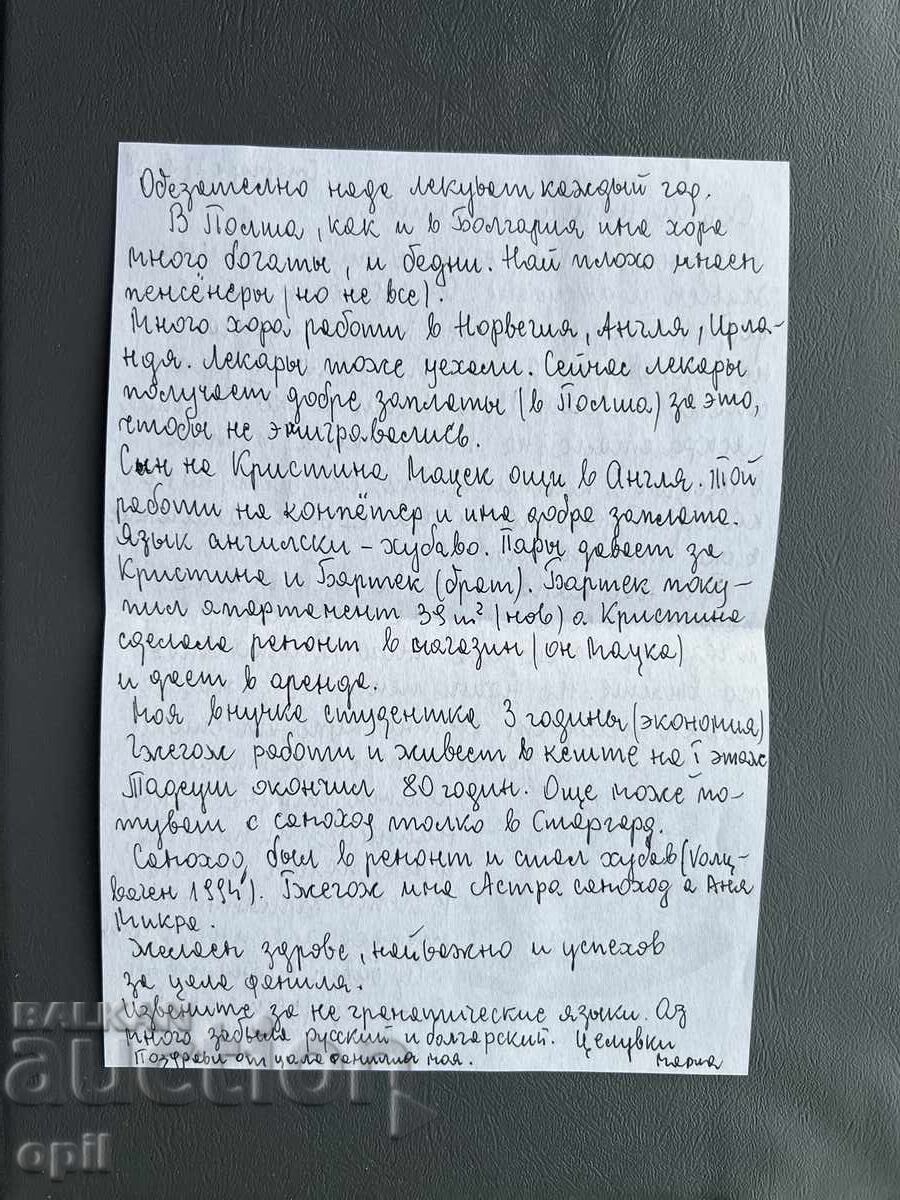 Обезателно нада лекуват каждый год.
В Полша, как и в Болгария има хора
много богаты, и бедни. Най плохо имеен
пенсёнеры (но не все).
Много хора работи в Норвегия, Англя, Ирла-
ндя. Лекары тоже уехали. Сейчас лекары
получает добре заплаты (в Полша) за это,
чтобы не эмигравались.
Сын на Кристина Мацек ощи в Англя. Той
работи на компётер и има добра заплата.
Язык ангилски - хубаво. Пары давает за
Кристина и Бартек (брат). Бартек поку-
пил апартамент 39 m² (нов) а Кристина
сделала ремонт в магазин (он Мацка)
и дает в аренда.
Моя внучка студентка 3 годины (экономия)
Гжегож работи и живест в кеште на I этаж
Тадеуш окончил 80 годин. Още може по-
тувати с самоход толко в Старгард.
Самоход был в ремонт и стал хубав (Volц-
ваген 1994). Гжегож има Астра самоход а Аня
Микра.
Желаем здраве, найважно и успехов
за цела фамиля.
Извените за не граматические языки. Аз
много забыла русский и болгарский. Целувки
Поздрави от цала фамилия моя. Мария
BALKAN
auction
opil